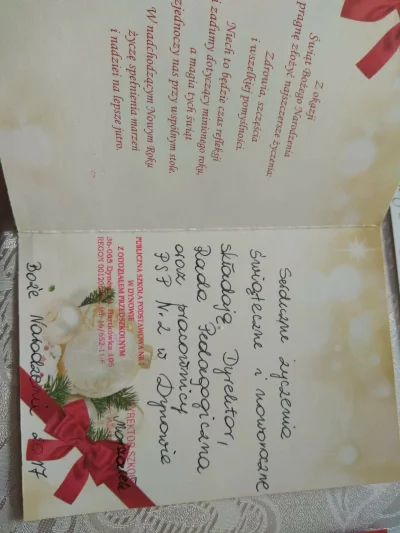 Z okazji
Świąt Bożego Narodzenia
pragnę złożyć najszczersze życzenia:
Zdrowia, szczęścia
i wszelkiej pomyślności.
Niech to będzie czas refleksji
i zadumy dotyczący minionego roku,
a magia tych świąt
zjednoczy nas przy wspólnym stole.
W nadchodzącym Nowym Roku
życzę spełnienia marzeń
i nadziei na lepsze jutro.
Serdeczne życzenia
świąteczne i noworoczne
składają, Dyrektor,
Rada Pedagogiczna
oraz pracownicy
PSP Nr 2 w Dynowie
PUBLICZNA SZKOŁA PODSTAWOWA NR 2
Z ODDZIAŁEM PRZEDSZKOLNYM
W DYNOWIE
36-065 Dynów, ul. Bartkówka 105
REGON
DYREKTOR SZKOŁY
Boże Narodzenie 2017